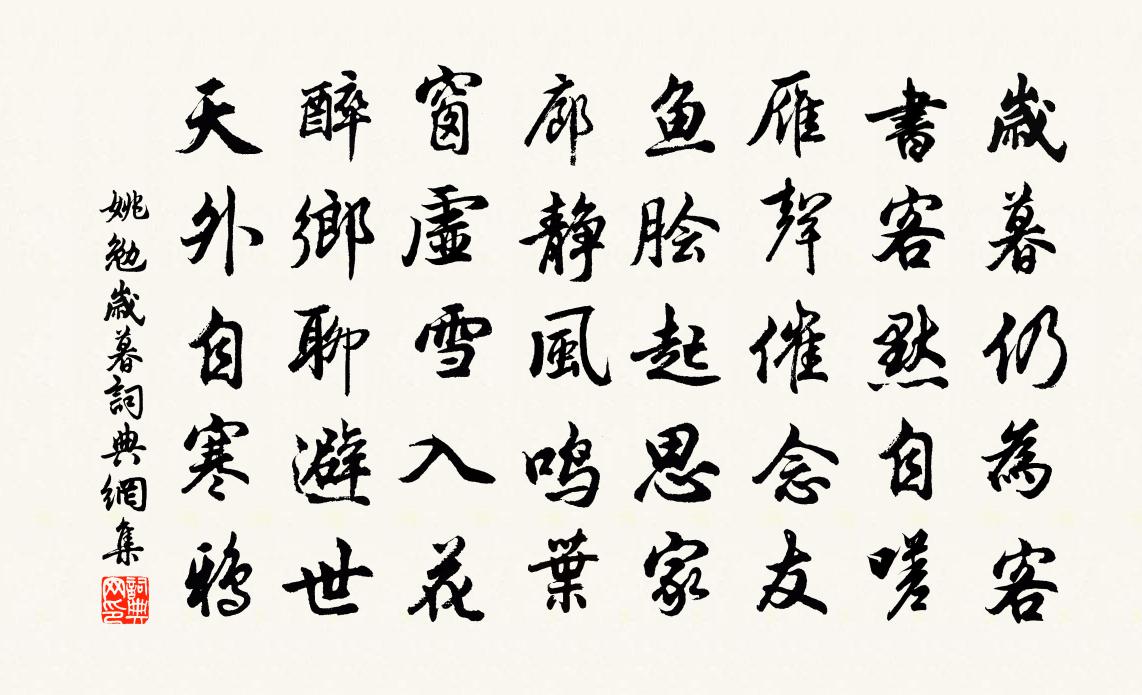 歲暮仍為客
書客默自嗟
雁聲催念友
魚膾起思家
廊靜風鳴葉
窗虛雪入花
醉鄉聊避世
天外自寒鴉
姚勉歲暮詞典網集
詞典网印